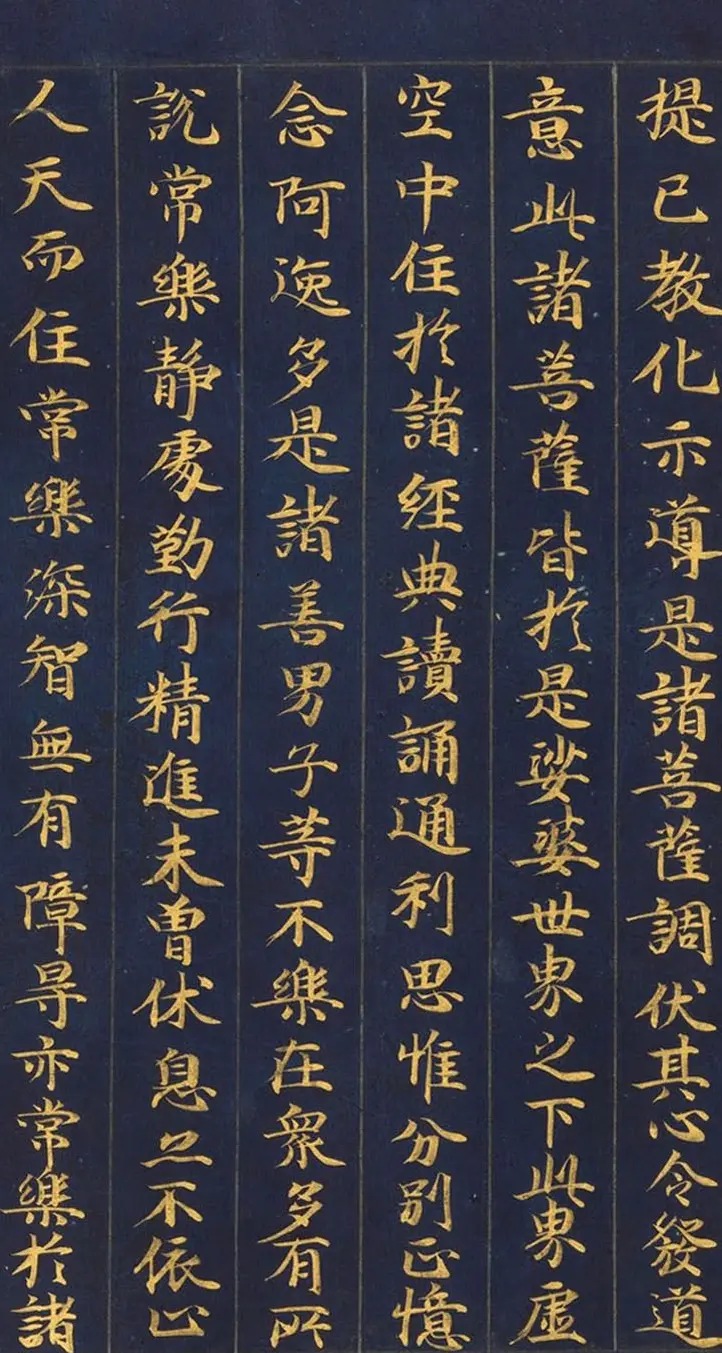 提已教化示導是諸菩薩調伏其心令發道
意此諸菩薩皆於是娑婆世界之下此界虛
空中住於諸經典讀誦通利思惟分別正憶
念阿逸多是諸善男子等不樂在衆多有所
說常樂靜處勤行精進未曾休息亦不依止
人天而住常樂深智無有障㝵亦常樂於諸